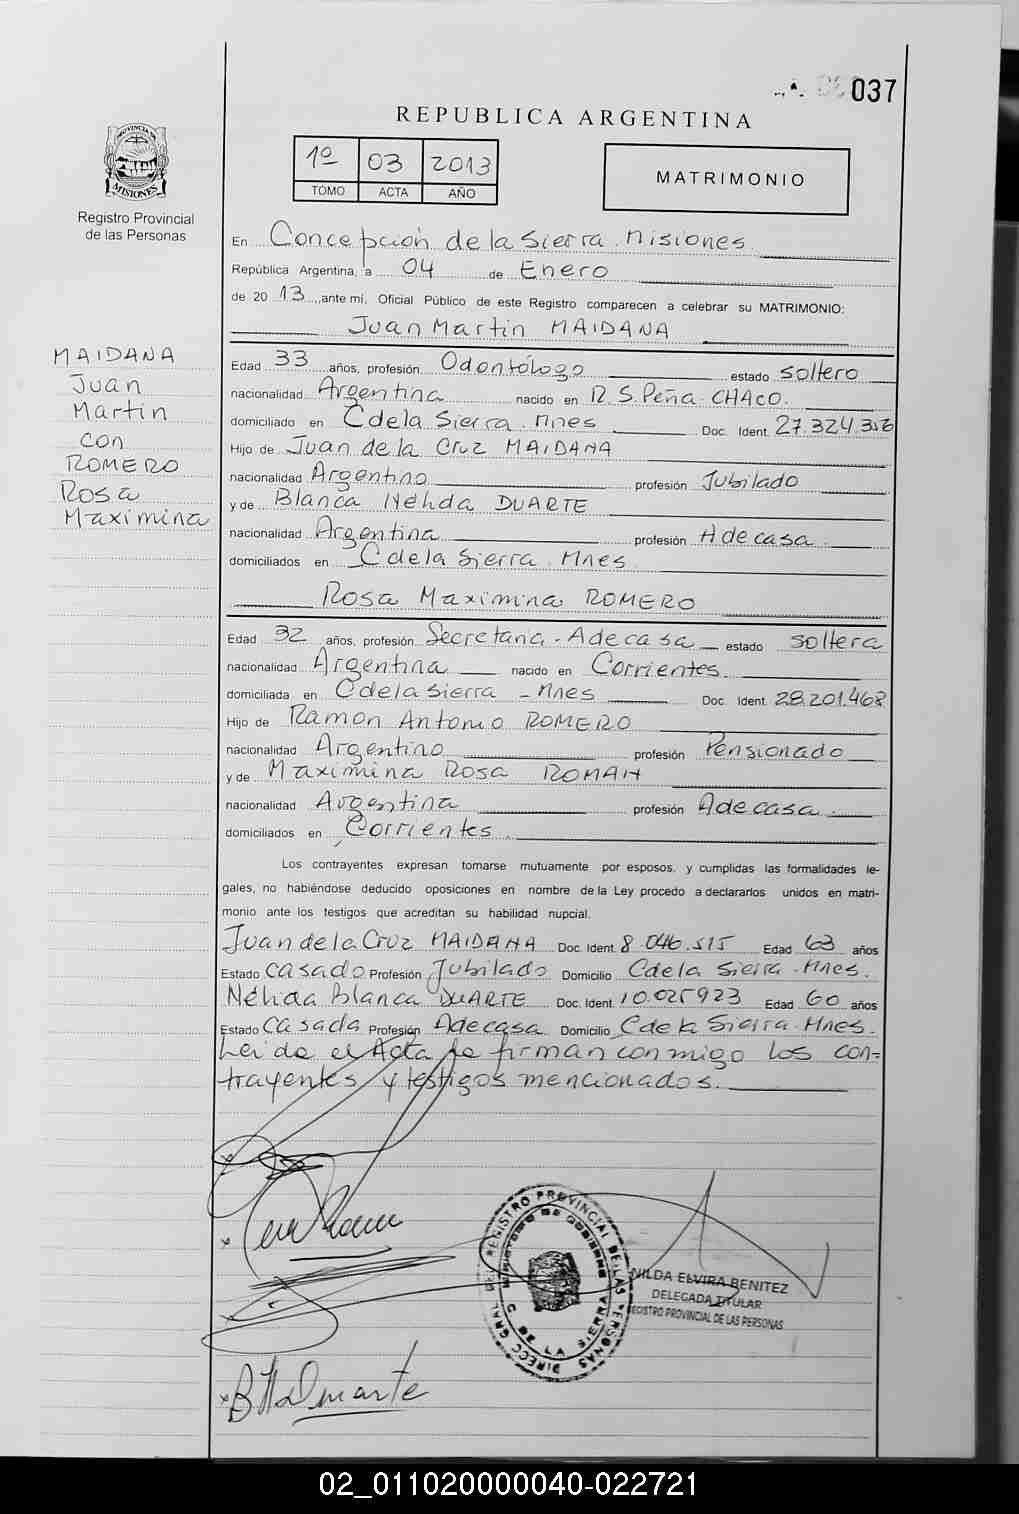 037
REPUBLICA ARGENTINA
PROVINCIA DE
MISIONES
Registro Provincial
de las Personas
1º 03 2013
TOMO ACTA AÑO
MATRIMONIO
En Concepción de la Sierra. Misiones
República Argentina, a 04 de Enero
de 2013, ante mí, Oficial Público de este Registro comparecen a celebrar su MATRIMONIO:
Juan Martin MAIDANA
MAIDANA
Juan
Martin
con
ROMERO
Rosa
Maximina
Edad 33 años, profesión Odontólogo estado soltero
nacionalidad Argentina nacido en R. S. Peña - CHACO.
domiciliado en C de la Sierra. Mnes Doc. Ident. 27.324.356
Hijo de Juan de la Cruz MAIDANA
nacionalidad Argentino profesión Jubilado
y de Blanca Nélida DUARTE
nacionalidad Argentina profesión A de casa
domiciliados en C de la Sierra. Mnes
Rosa Maximina ROMERO
Edad 32 años, profesión Secretaria - A de casa estado soltera
nacionalidad Argentina nacido en Corrientes
domiciliada en C de la Sierra - Mnes Doc. Ident. 28.201.468
Hijo de Ramon Antonio ROMERO
nacionalidad Argentino profesión Pensionado
y de Maximina Rosa ROMAN
nacionalidad Argentina profesión A de casa
domiciliados en Corrientes
Los contrayentes expresan tomarse mutuamente por esposos, y cumplidas las formalidades le-
gales, no habiéndose deducido oposiciones en nombre de la Ley procedo a declararlos unidos en matri-
monio ante los testigos que acreditan su habilidad nupcial.
Juan de la Cruz MAIDANA Doc. Ident. 8.046.515 Edad 63 años
Estado casado Profesión Jubilado Domicilio C de la Sierra - Mnes.
Nélida Blanca DUARTE Doc. Ident. 10.025923 Edad 60 años
Estado Casada Profesión A de casa Domicilio C de la Sierra - Mnes.
Leida el Acta la firman conmigo los con-
trayentes y testigos mencionados.
DIRECC. GRAL. DEL REGISTRO PROVINCIAL DE LAS PERSONAS
MINISTERIO DE GOBIERNO
C. DE LA SIERRA
NILDA ELVIRA BENITEZ
DELEGADA TITULAR
REGISTRO PROVINCIAL DE LAS PERSONAS
B N Duarte
02_011020000040-022721